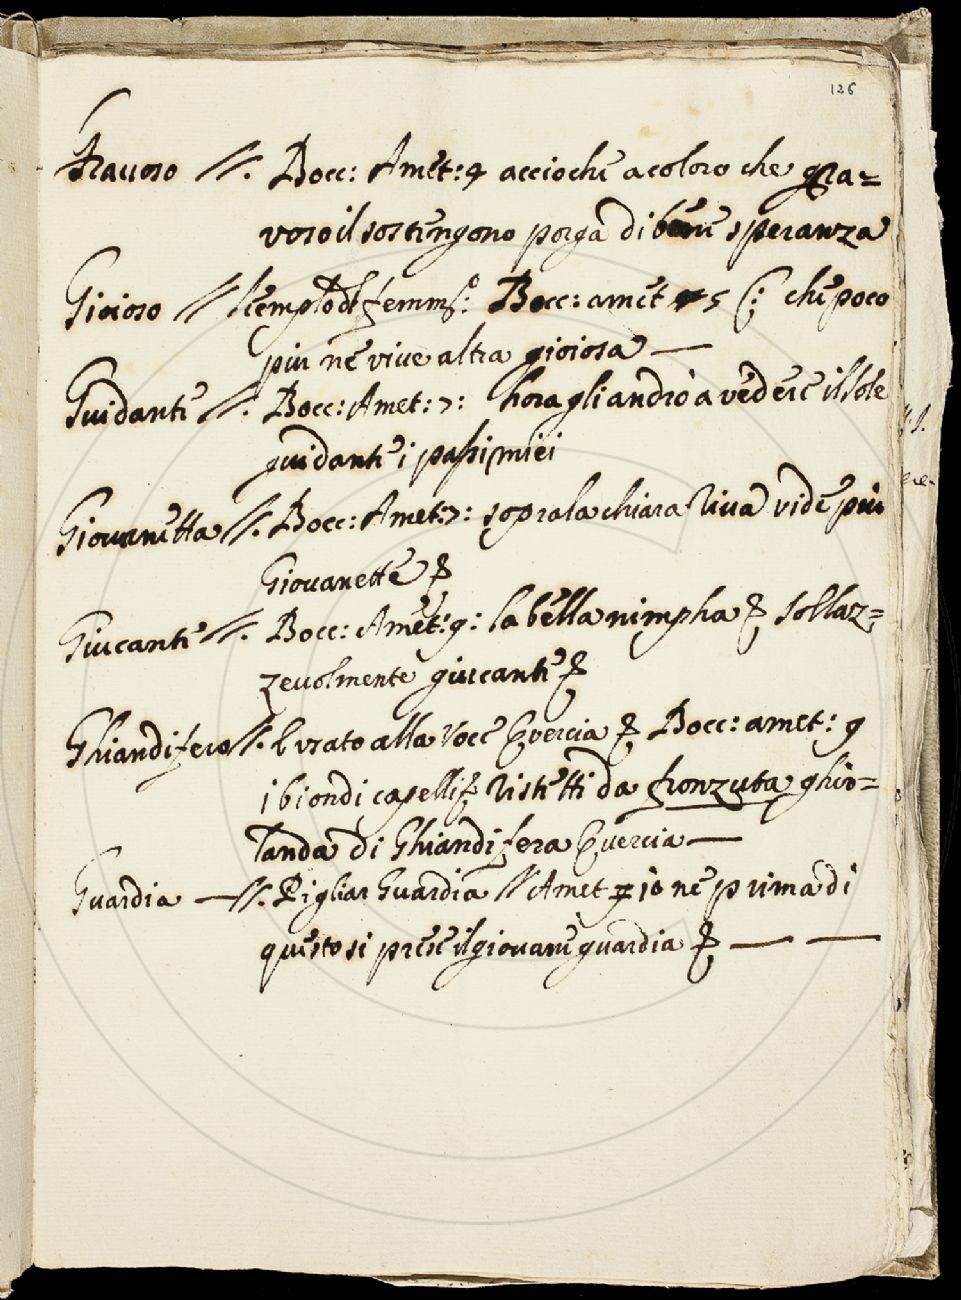 126
Grauoso //. Bocc: Amet: 4 acciochè a coloro che gra=
voso il sostengono porga di bene speranza
Gioioso // l'empio del femm: Bocc: amet 5 che poco
piu ne vive altra gioiosa —
Guidante //. Bocc: Amet: 7: hora gli andrò a vedere il sole
guidante i passi miei
Giouanetta //. Bocc: Amet: 7: sopra la chiara riua vide più
Giouanette &
Giucante //. Bocc: Amet: 9: la bella nimpha & sollaz=
zeuolmente giucante &
Ghiandifero //. È usato alla voce Quercia & Bocc: amet: 9
i biondi capelli & ristretti da fronzuta ghir=
landa di Ghiandifera Quercia —
Guardia — //. Pigliar Guardia // Amet 10 ne prima di
questo si prese il giouane guardia & — —